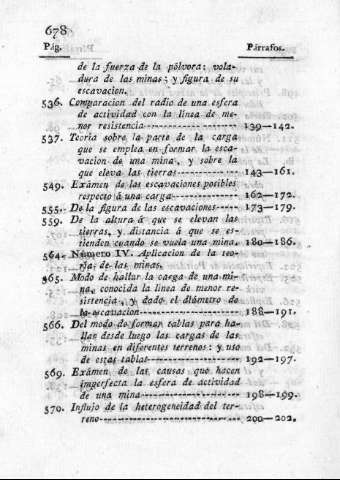 678
Pág. Párrafos.
de la fuerza de la pólvora: vola-
dura de las minas: y figura de su
escavacion.
536. Comparacion del radio de una esfera
de actividad con la linea de me-
nor resistencia 139—142.
537. Teoría sobre la parte de la carga
que se emplea en formar la esca-
vacion de una mina, y sobre la
que eleva las tierras 143—161.
549. Exâmen de las escavaciones posibles
respecto á una carga 162—172.
555. De la figura de las escavaciones 173—179.
559. De la altura á que se elevan las
tierras, y distancia á que se es-
tienden cuando se vuela una mina. 180—186.
564. Número IV. Aplicacion de la teo-
ría de las minas.
565. Modo de hallar la carga de una mi-
na, conocida la linea de menor re-
sistencia, y dado el diámetro de
la escavacion 188—191.
566. Del modo de formar tablas para ha-
llar desde luego las cargas de las
minas en diferentes terrenos: y uso
de estas tablas 192—197.
569. Exâmen de las causas que hacen
imperfecta la esfera de actividad
de una mina 198—199.
570. Influjo de la heterogeneidad del ter-
reno 200—202.